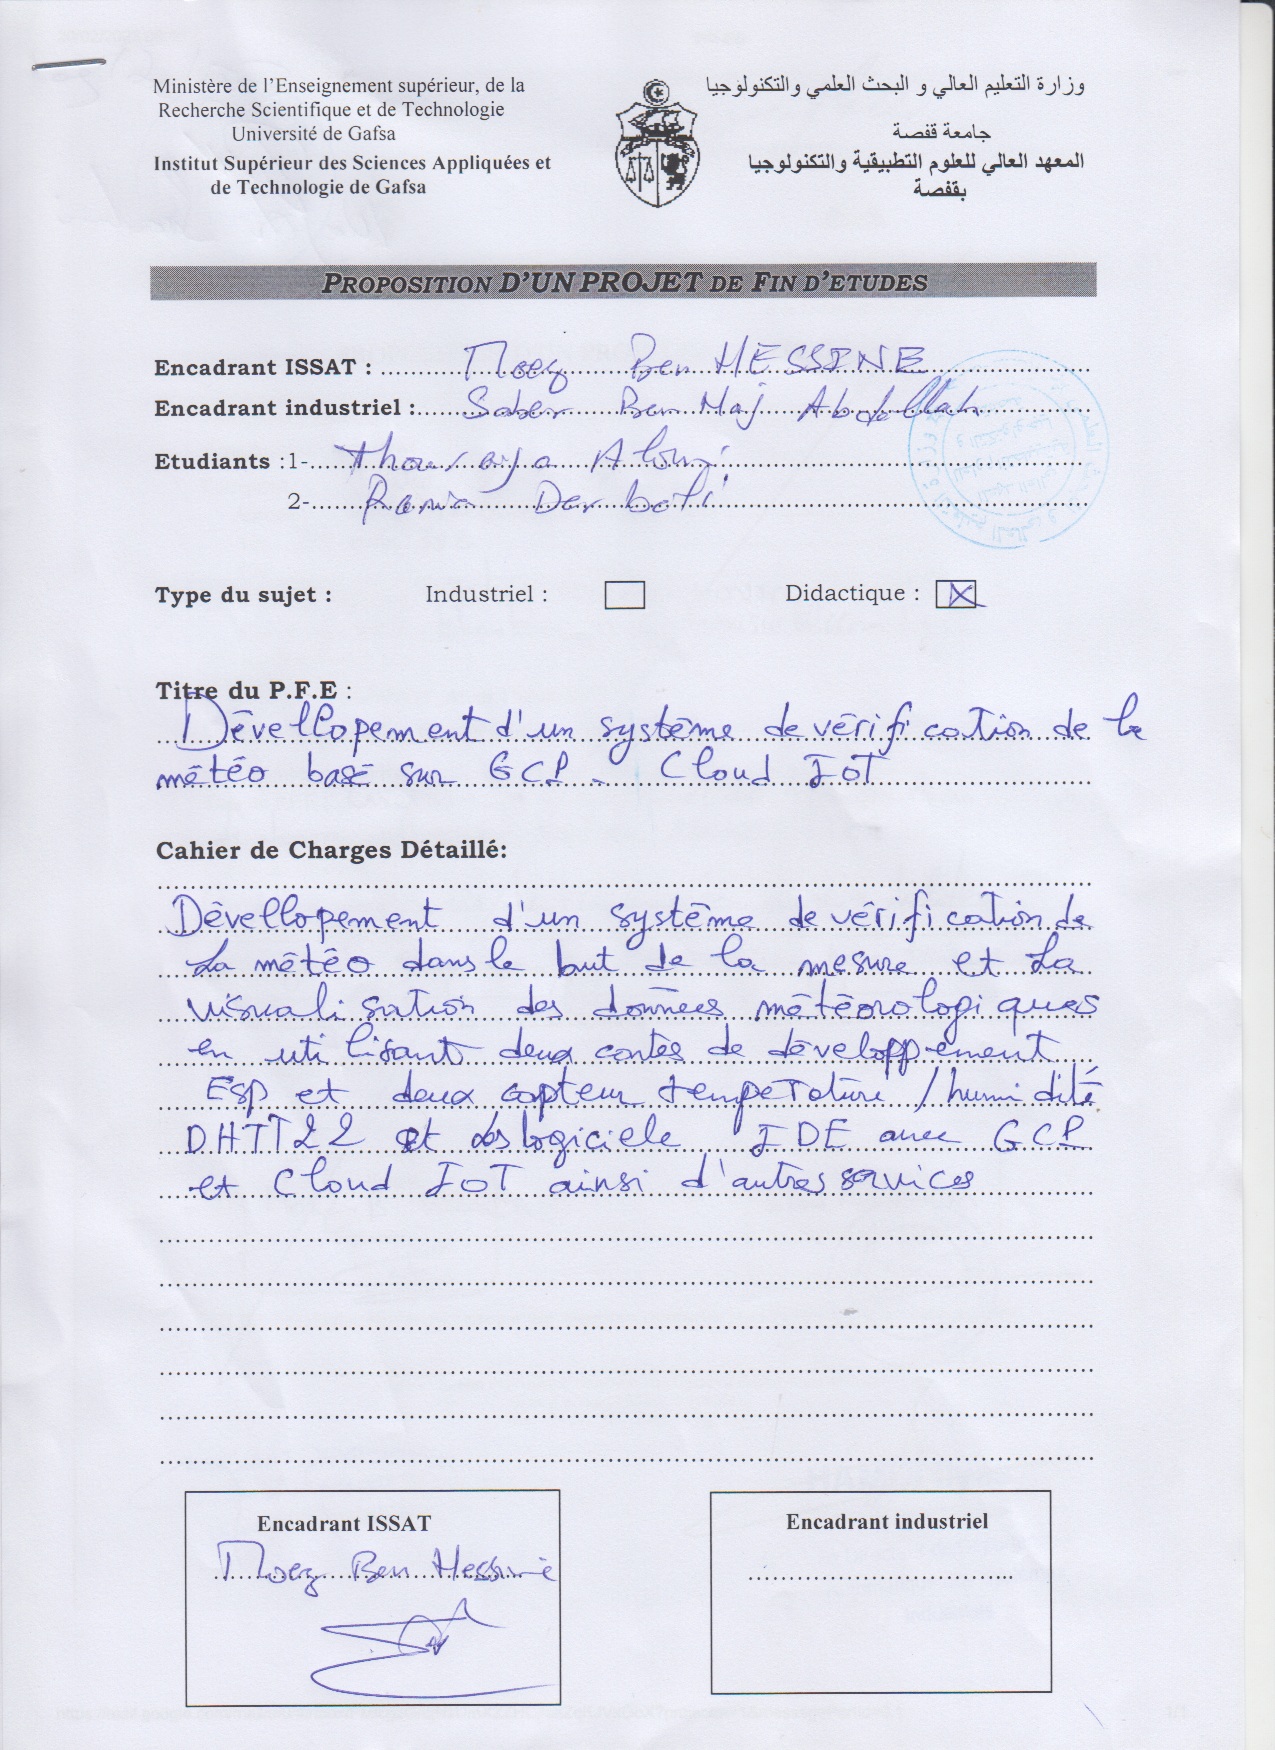 Ministère de l'Enseignement supérieur, de la
Recherche Scientifique et de Technologie
Université de Gafsa
Institut Supérieur des Sciences Appliquées et
de Technologie de Gafsa
وزارة التعليم العالي و البحث العلمي والتكنولوجيا
جامعة قفصة
المعهد العالي للعلوم التطبيقية والتكنولوجيا
بقفصة
PROPOSITION D'UN PROJET DE FIN D'ETUDES
Encadrant ISSAT : Moez Ben HESSINE
Encadrant industriel : Saber Ben Haj Abdellah
Etudiants :1- Thouraya Aloui
2- Rania Derbali
Type du sujet : Industriel : Didactique : X
Titre du P.F.E :
Dévellopement d'un système de vérification de la
météo basé sur GCP - Cloud IoT
Cahier de Charges Détaillé:
Dévellopement d'un système de vérification de
La météo dans le but de la mesure et La
visualisation des données météorologiques
en utilisant deux cartes de développement
ESP et deux capteur température / humidité
DHTT22 et des logiciele IDE avec GCP
et Cloud IoT ainsi d'autres services
Encadrant ISSAT
Moez Ben Hessine
Encadrant industriel